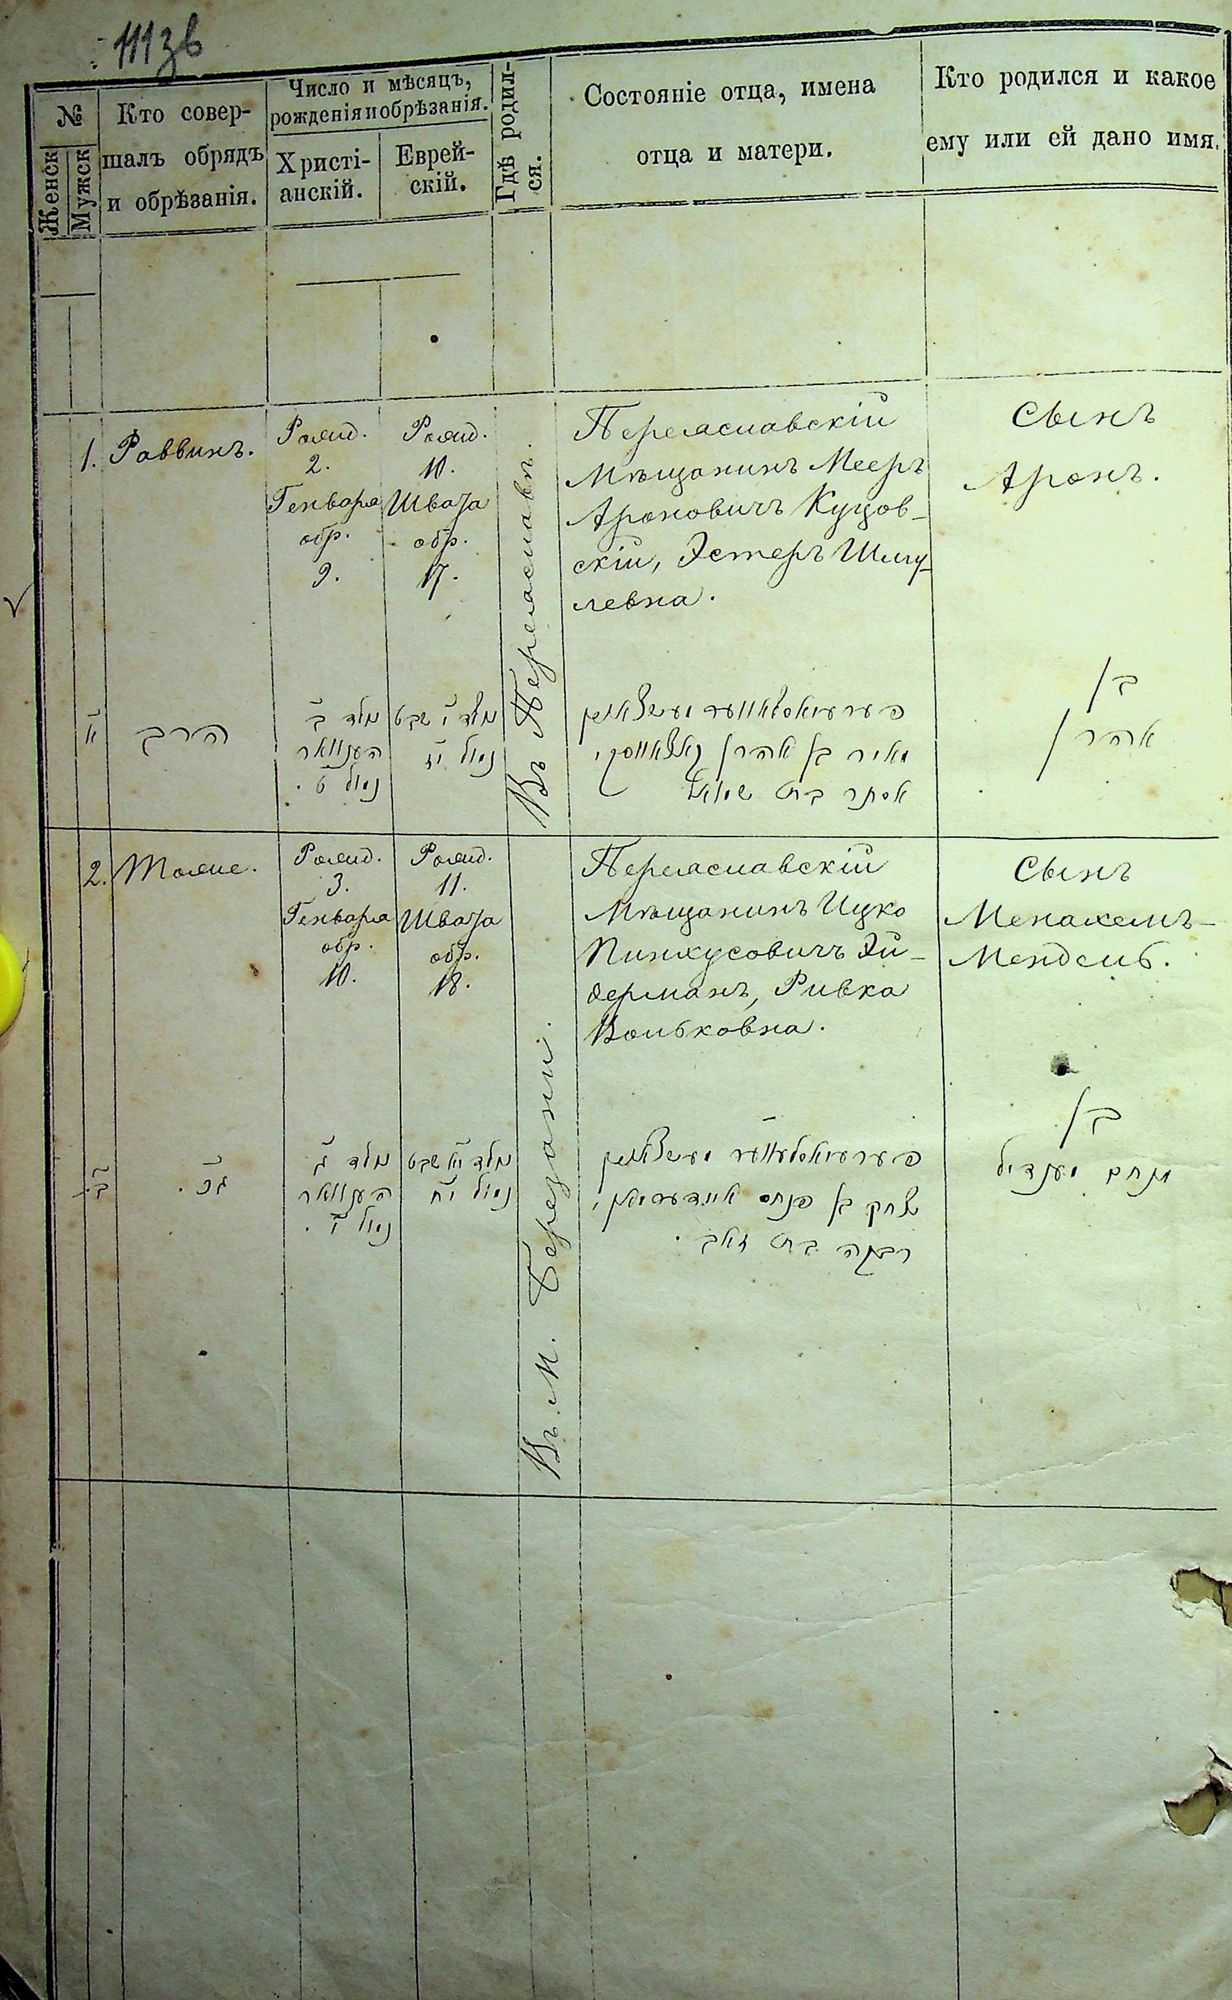 111зв
№
Женск
Мужск
Кто совер-
шалъ обрядъ
и обрѣзанія.
Число и мѣсяцъ,
рожденія и обрѣзанія.
Христі-
анскій.
Еврей-
скій.
Гдѣ родил-
ся.
Состояніе отца, имена
отца и матери.
Кто родился и какое
ему или ей дано имя.
1.
Раввинъ.
Рожд.
2.
Генваря
обр.
9.
Рожд.
10.
Швата
обр.
17.
Въ Переяславѣ.
Переяславскій
Мѣщанинъ Мееръ
Ароновичъ Куцов-
скій, Эстеръ Шму-
левна.
Сынъ
Аронъ.
א
הרב
נולד ב
יענוואר
נמול ט.
נולד י שבט
נמול יז
מאיר בן אהרן
אסתר בת שמואל
בן
אהרן
2.
Тоже.
Рожд.
3.
Генваря
обр.
10.
Рожд.
11.
Швата
обр.
18.
Въ м. Березани.
Переяславскій
Мѣщанинъ Ицко
Пинхусовичъ Эй-
дерманъ, Ривка
Вольковна.
Сынъ
Менахемъ-
Мендель.
ב.
נולד ג
יענוואר
נמול י.
נולד יא שבט
נמול יח
יצחק בן פנחס איידערמאן,
רבקה בת זאב.
בן
מנחם מענדיל